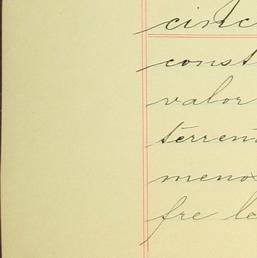 cinc
const
valor
terren
meno
fre le